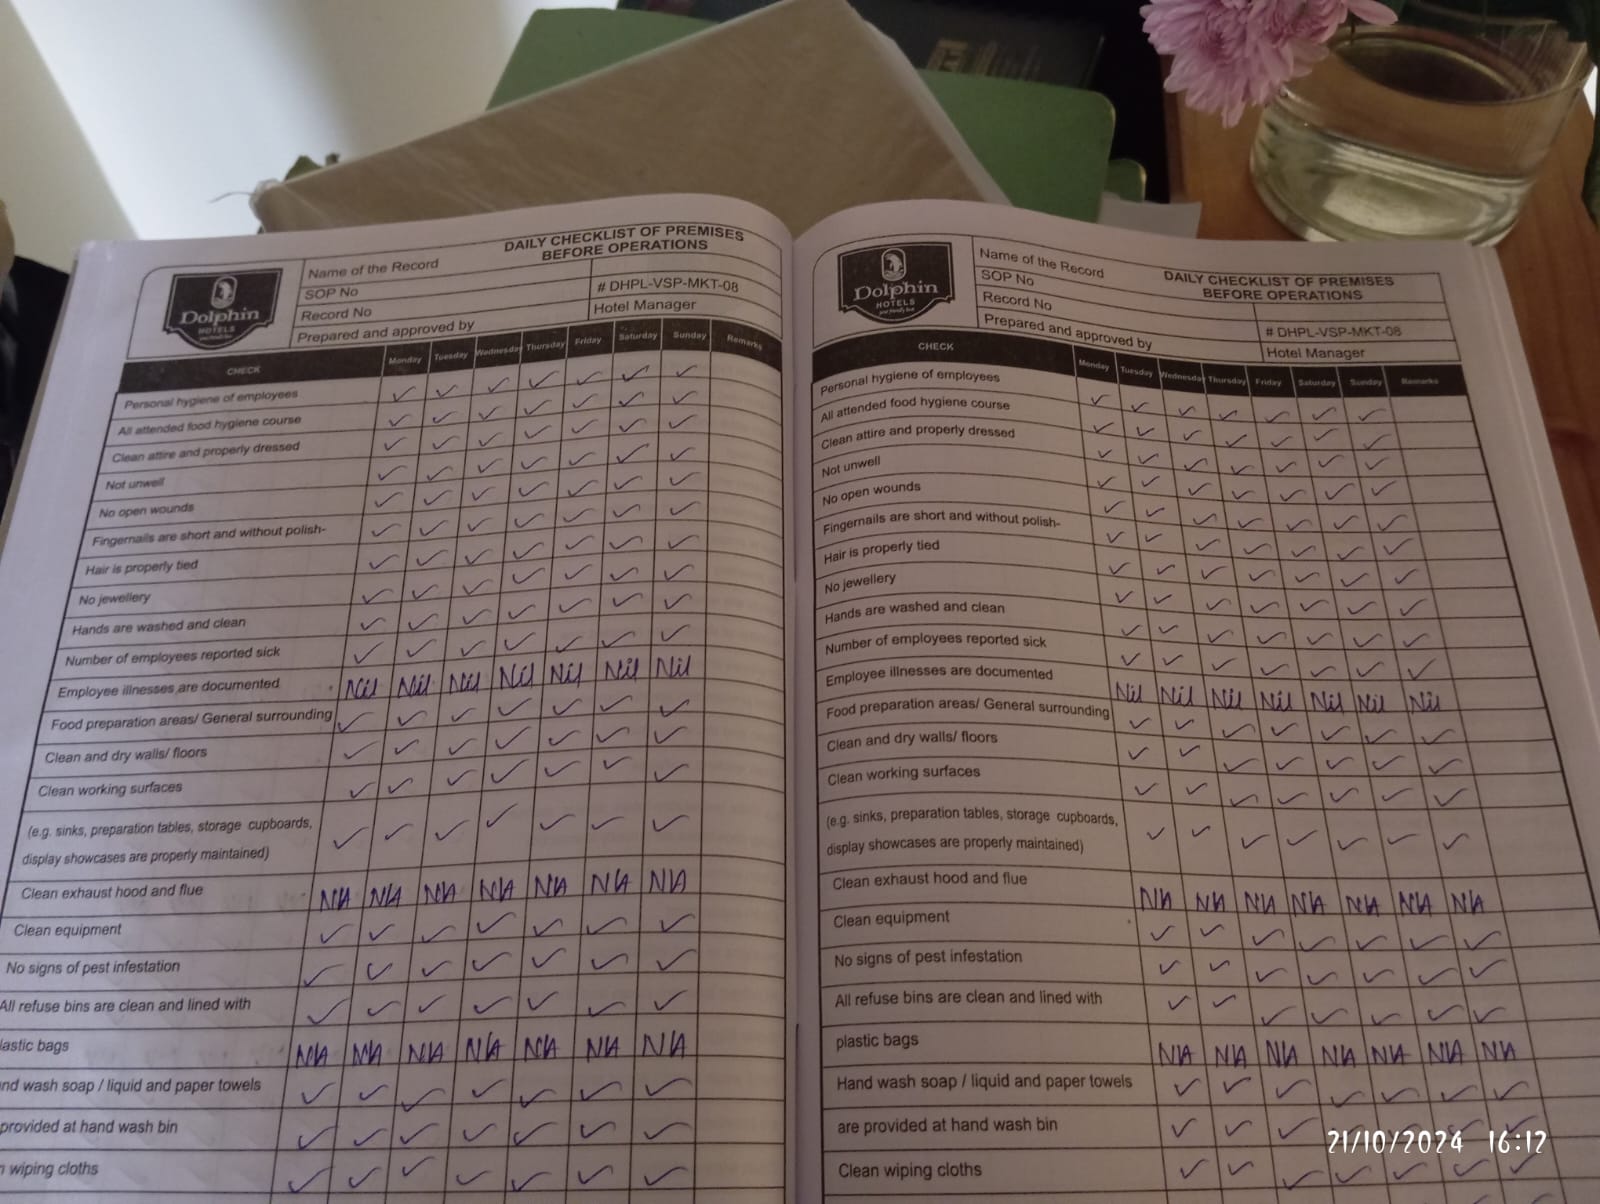 Dolphin
HOTELS
Name of the Record
DAILY CHECKLIST OF PREMISES
BEFORE OPERATIONS
SOP No
Record No
# DHPL-VSP-MKT-08
Prepared and approved by
Hotel Manager
CHECK Monday Tuesday Wednesday Thursday Friday Saturday Sunday Remarks
Personal hygiene of employees ✓ ✓ ✓ ✓ ✓ ✓ ✓
All attended food hygiene course ✓ ✓ ✓ ✓ ✓ ✓ ✓
Clean attire and properly dressed ✓ ✓ ✓ ✓ ✓ ✓ ✓
Not unwell ✓ ✓ ✓ ✓ ✓ ✓ ✓
No open wounds ✓ ✓ ✓ ✓ ✓ ✓ ✓
Fingernails are short and without polish- ✓ ✓ ✓ ✓ ✓ ✓ ✓
Hair is properly tied ✓ ✓ ✓ ✓ ✓ ✓ ✓
No jewellery ✓ ✓ ✓ ✓ ✓ ✓ ✓
Hands are washed and clean ✓ ✓ ✓ ✓ ✓ ✓ ✓
Number of employees reported sick ✓ ✓ ✓ ✓ ✓ ✓ ✓
Employee illnesses are documented Nil Nil Nil Nil Nil Nil Nil
Food preparation areas/ General surrounding ✓ ✓ ✓ ✓ ✓ ✓ ✓
Clean and dry walls/ floors ✓ ✓ ✓ ✓ ✓ ✓ ✓
Clean working surfaces ✓ ✓ ✓ ✓ ✓ ✓ ✓
(e.g. sinks, preparation tables, storage cupboards,
display showcases are properly maintained) ✓ ✓ ✓ ✓ ✓ ✓ ✓
Clean exhaust hood and flue NA NA NA NA NA NA NA
Clean equipment ✓ ✓ ✓ ✓ ✓ ✓ ✓
No signs of pest infestation ✓ ✓ ✓ ✓ ✓ ✓ ✓
All refuse bins are clean and lined with ✓ ✓ ✓ ✓ ✓ ✓ ✓
lastic bags NA NA NA NA NA NA NA
nd wash soap / liquid and paper towels ✓ ✓ ✓ ✓ ✓ ✓ ✓
provided at hand wash bin ✓ ✓ ✓ ✓ ✓ ✓ ✓
n wiping cloths ✓ ✓ ✓ ✓ ✓ ✓ ✓
Dolphin
HOTELS
Name of the Record
DAILY CHECKLIST OF PREMISES
BEFORE OPERATIONS
SOP No
Record No
# DHPL-VSP-MKT-08
Prepared and approved by
Hotel Manager
CHECK Monday Tuesday Wednesday Thursday Friday Saturday Sunday Remarks
Personal hygiene of employees ✓ ✓ ✓ ✓ ✓ ✓ ✓
All attended food hygiene course ✓ ✓ ✓ ✓ ✓ ✓ ✓
Clean attire and properly dressed ✓ ✓ ✓ ✓ ✓ ✓ ✓
Not unwell ✓ ✓ ✓ ✓ ✓ ✓ ✓
No open wounds ✓ ✓ ✓ ✓ ✓ ✓ ✓
Fingernails are short and without polish- ✓ ✓ ✓ ✓ ✓ ✓ ✓
Hair is properly tied ✓ ✓ ✓ ✓ ✓ ✓ ✓
No jewellery ✓ ✓ ✓ ✓ ✓ ✓ ✓
Hands are washed and clean ✓ ✓ ✓ ✓ ✓ ✓ ✓
Number of employees reported sick ✓ ✓ ✓ ✓ ✓ ✓ ✓
Employee illnesses are documented Nil Nil Nil Nil Nil Nil Nil
Food preparation areas/ General surrounding ✓ ✓ ✓ ✓ ✓ ✓ ✓
Clean and dry walls/ floors ✓ ✓ ✓ ✓ ✓ ✓ ✓
Clean working surfaces ✓ ✓ ✓ ✓ ✓ ✓ ✓
(e.g. sinks, preparation tables, storage cupboards,
display showcases are properly maintained) ✓ ✓ ✓ ✓ ✓ ✓ ✓
Clean exhaust hood and flue NA NA NA NA NA NA NA
Clean equipment ✓ ✓ ✓ ✓ ✓ ✓ ✓
No signs of pest infestation ✓ ✓ ✓ ✓ ✓ ✓ ✓
All refuse bins are clean and lined with ✓ ✓ ✓ ✓ ✓ ✓ ✓
plastic bags NA NA NA NA NA NA NA
Hand wash soap / liquid and paper towels ✓ ✓ ✓ ✓ ✓ ✓ ✓
are provided at hand wash bin ✓ ✓ ✓ ✓ ✓ ✓ ✓
Clean wiping cloths ✓ ✓ ✓ ✓ ✓ ✓ ✓
21/10/2024 16:12